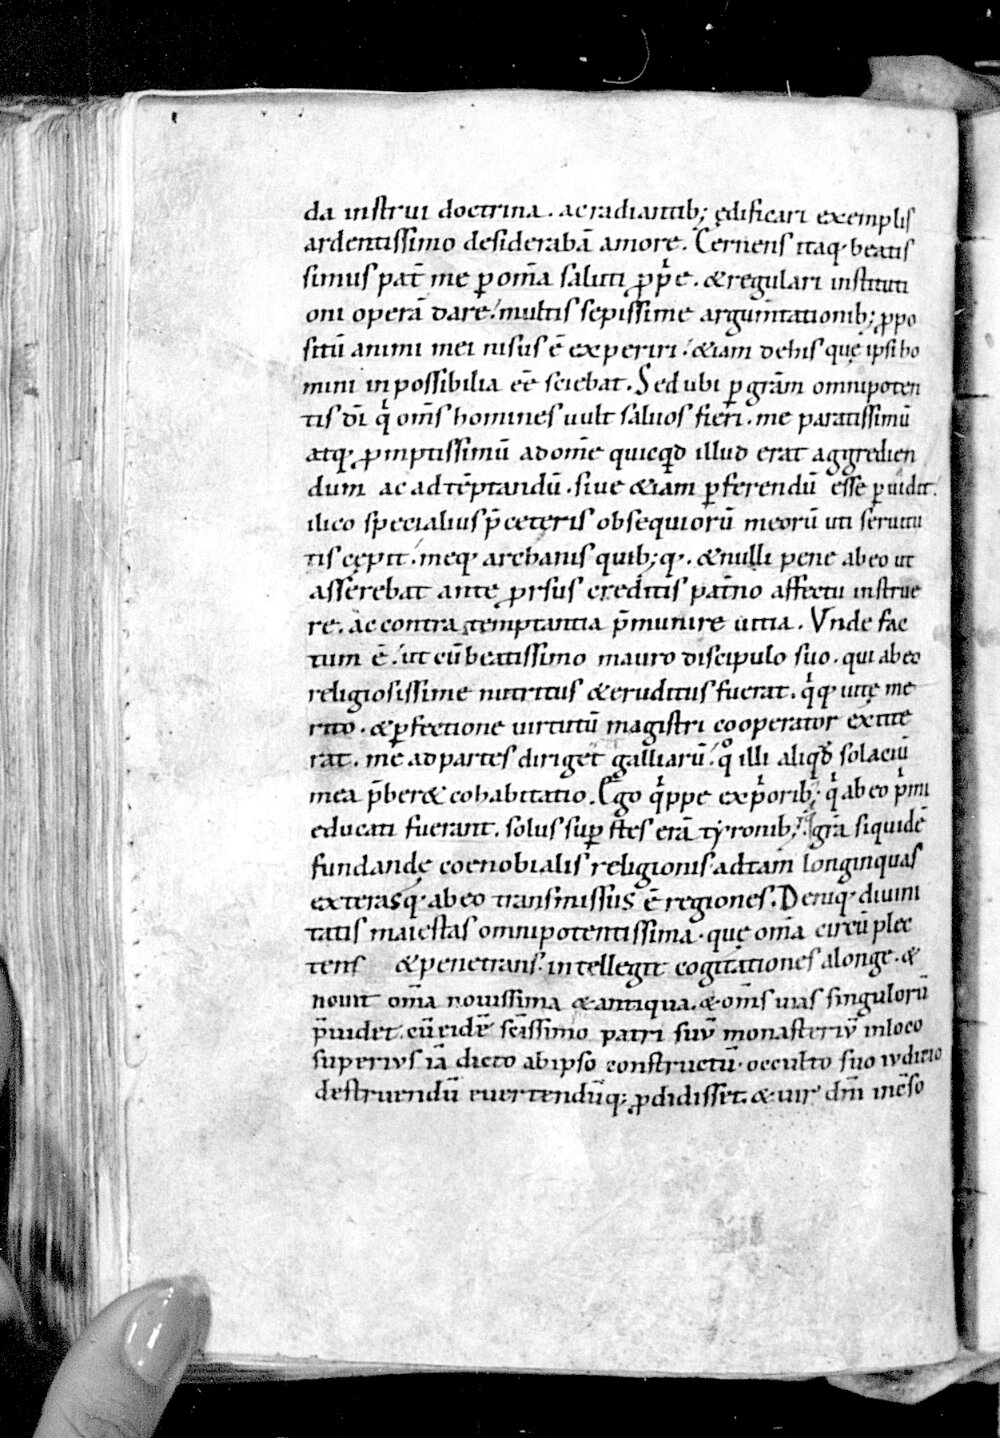 da instrui doctrina. ac radiantib; ędificari exemplis
ardentissimo desiderabā amore. Cernens itaq· beatis
simus pat̄ me ꝑ om̄a saluti ꝓpͥe. & regulari instituti
oni operā dare. multis sepissime argum̄tationib; ꝓpo
sitū animi mei nisus ē experiri. & iam de his quę ipsi ho
mini inpossibilia eē sciebat. Sed ubi ꝑ gr̄am omnipoten
tis dī qͥ om̄s homines uult saluos fieri. me paratissimū
atq· ꝓmptissimū ad om̄e quicqd illud erat aggredien
dum ac ad tēptandū. siue & iam ꝑferendū esse ꝑuidit.
ilico specialius p̄ ceteris obsequiorū meorū uti seruitu
tis cępit. meq· archanis quib;q·. & nulli pene ab eo ut
asserebat ante ꝓrsus creditis pat̄no affectu instrue
re. ac contra temptantia p̄munire uitia. Vnde fac
tum ē. ut cū beatissimo mauro discipulo suo. qui ab eo
religiosissime nutritus & eruditus fuerat. qͥq· uitę me
rito. & ꝑfectione uirtutū magistri cooperator extite
rat. me ad partes diriget galliarū. qͦ illi aliqd solaciū
mea p̄ber& cohabitatio. Ego qͥppe ex pͥorib; qͥ ab eo pͥmi
educati fuerant. solus suꝑstes erā tyronib; gr̄a siquidē
fundandę coenobialis religionis ad tam longinquas
exterasq· ab eo transmissus ē regiones. Deniq· diuini
tatis maiestas omnipotentissima. quę om̄a circū plec
tens & penetrans. intellegit cogitationes a longe. &
nouit om̄a nouissima & antiqua. & om̄s uias singulorū
p̄uidet. cū eidē sc̄issimo patri suū monasteriū in loco
superius iā dicto ab ipso constructū. occulto suo iudicio
destruendū euertendūq; ꝓdidisset. & uir dn̄i incēso